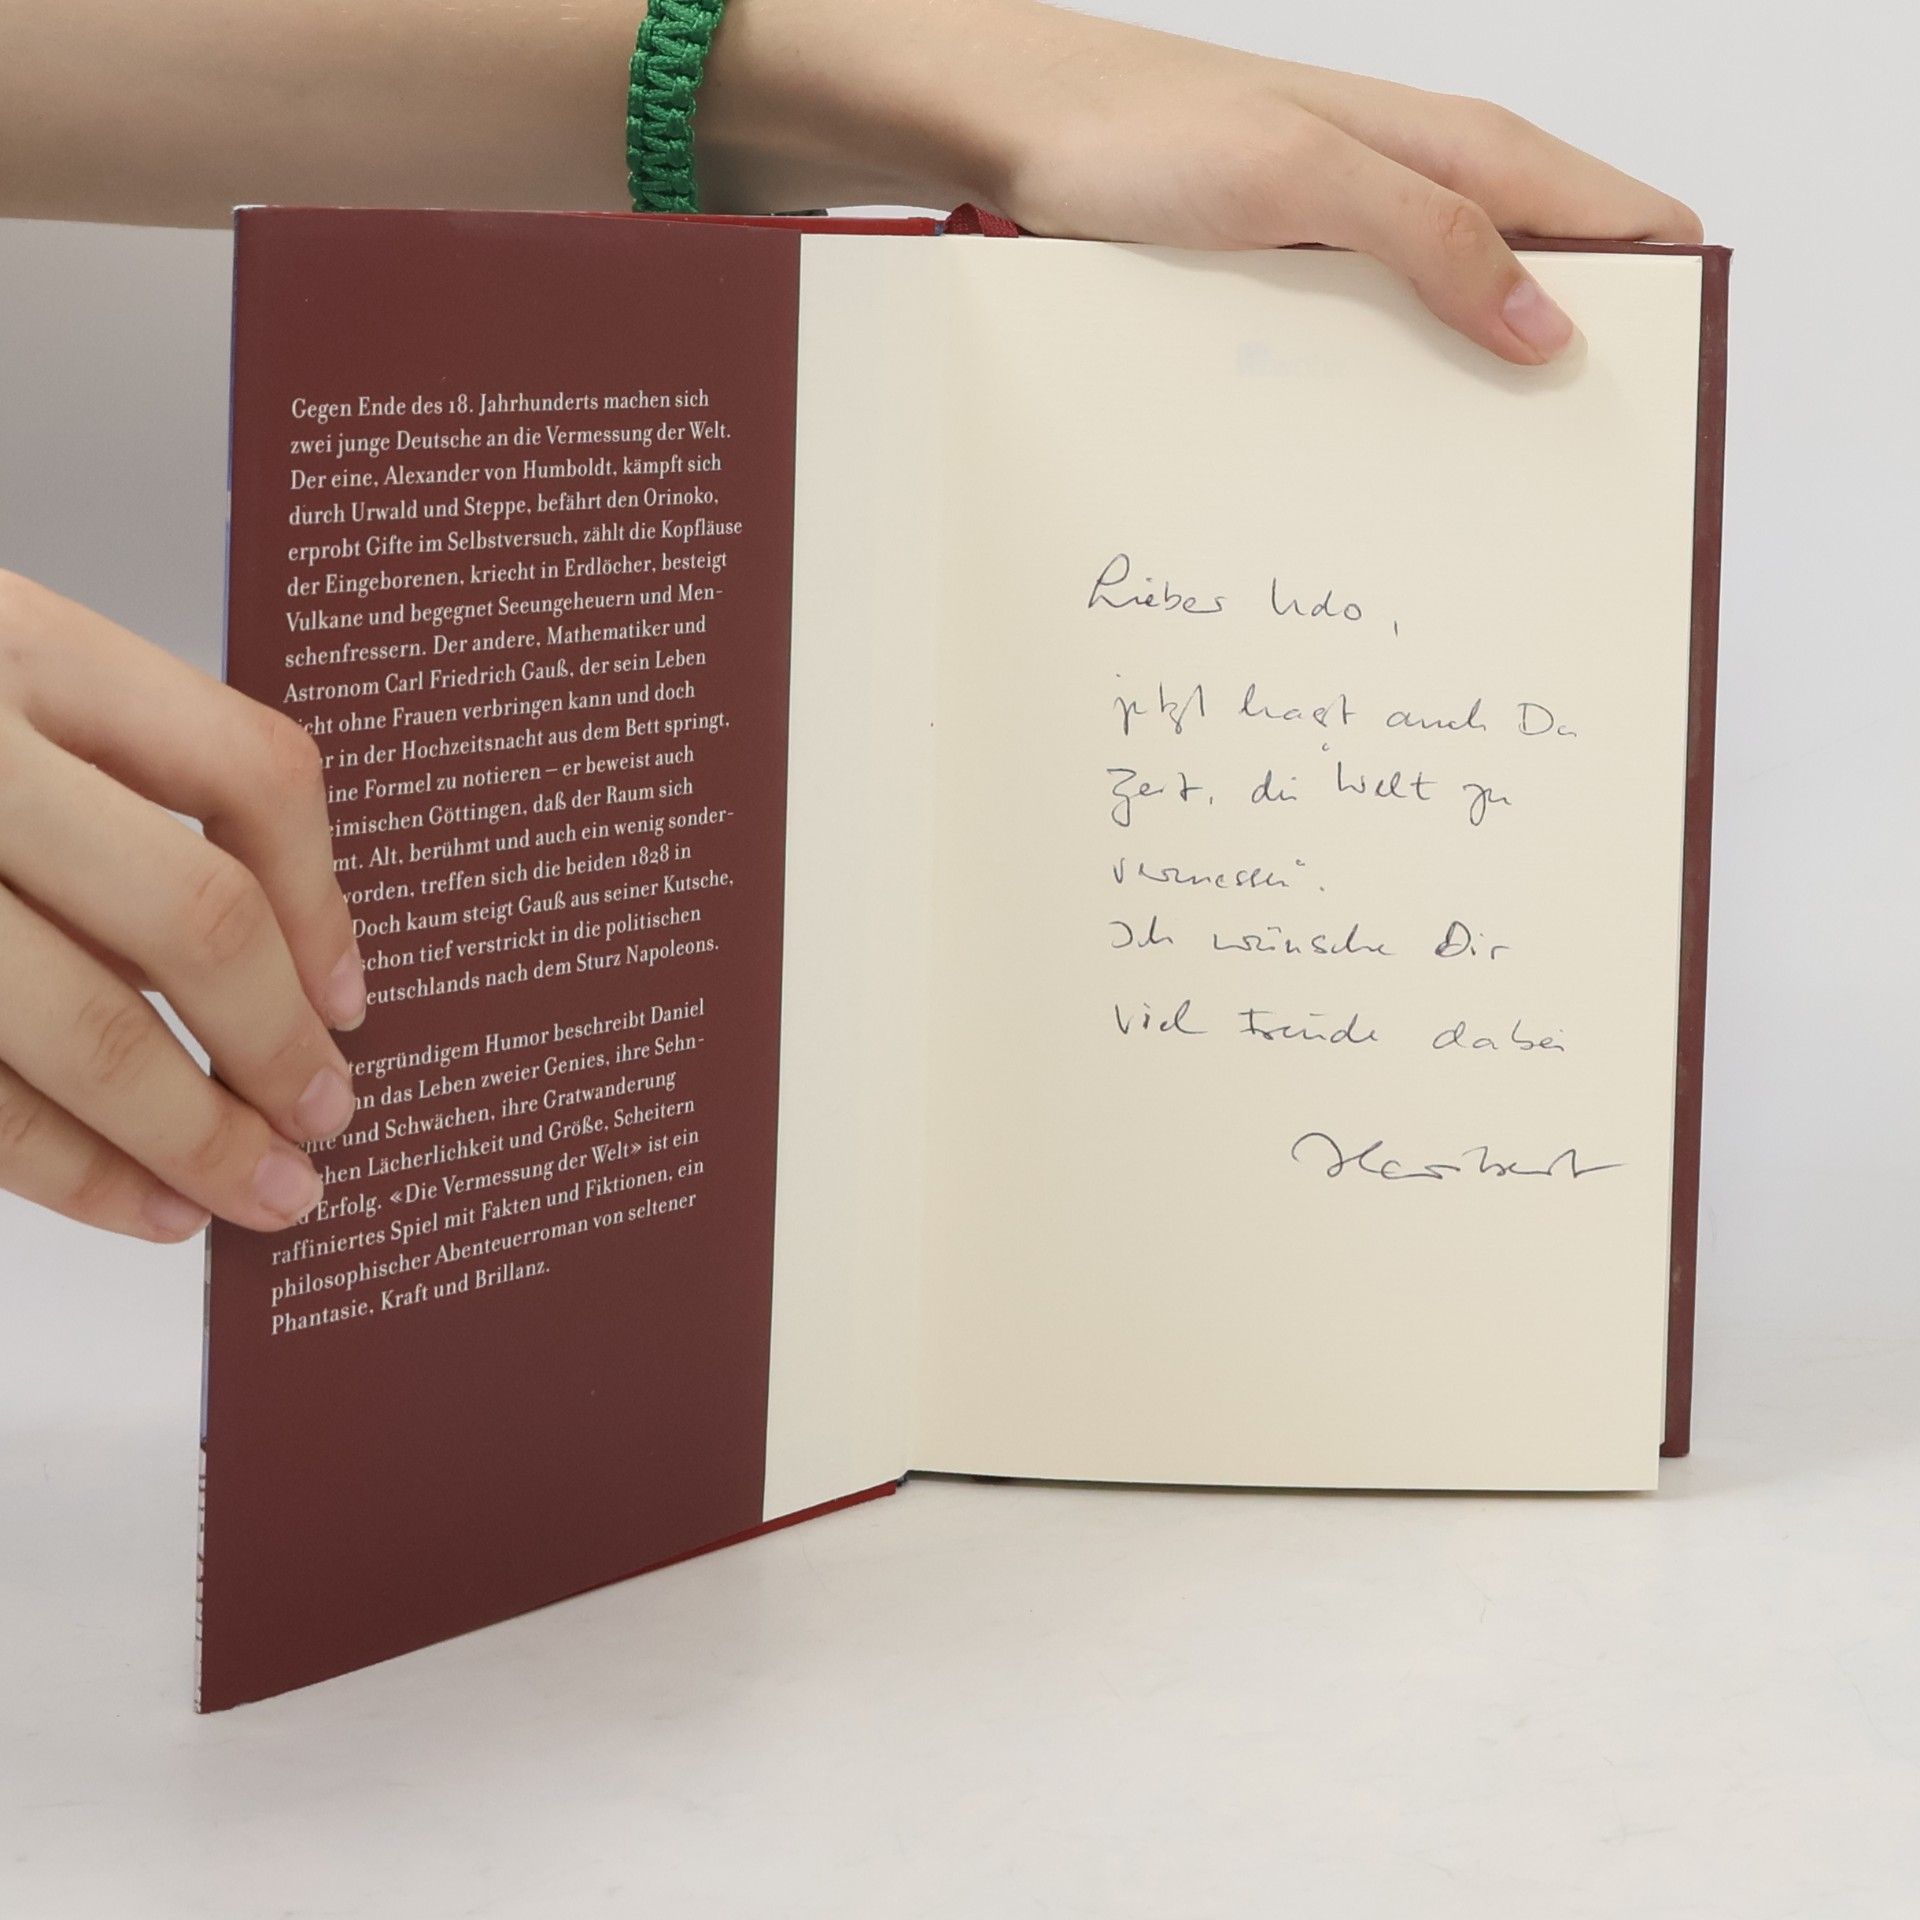 Gegen Ende des 18. Jahrhunderts machen sich
zwei junge Deutsche an die Vermessung der Welt.
Der eine, Alexander von Humboldt, kämpft sich
durch Urwald und Steppe, befährt den Orinoko,
erprobt Gifte im Selbstversuch, zählt die Kopfläuse
der Eingeborenen, kriecht in Erdlöcher, besteigt
Vulkane und begegnet Seeungeheuern und Men-
schenfressern. Der andere, Mathematiker und
Astronom Carl Friedrich Gauß, der sein Leben
ohne Frauen verbringen kann und doch
in der Hochzeitsnacht aus dem Bett springt,
Formel zu notieren – er beweist auch
Göttingen, daß der Raum sich
Alt, berühmt und auch ein wenig sonder-
treffen sich die beiden 1828 in
Doch kaum steigt Gauß aus seiner Kutsche,
schon tief verstrickt in die politischen
eutschlands nach dem Sturz Napoleons.
tergründigem Humor beschreibt Daniel
das Leben zweier Genies, ihre Sehn-
und Schwächen, ihre Gratwanderung
Lächerlichkeit und Größe, Scheitern
Erfolg. «Die Vermessung der Welt» ist ein
raffiniertes Spiel mit Fakten und Fiktionen, ein
philosophischer Abenteuerroman von seltener
Phantasie, Kraft und Brillanz.
Lieber Udo,
jetzt hast auch Du
Zeit, die "Welt zu
vermessen".
Ich wünsche Dir
viel Freude dabei
Heribert